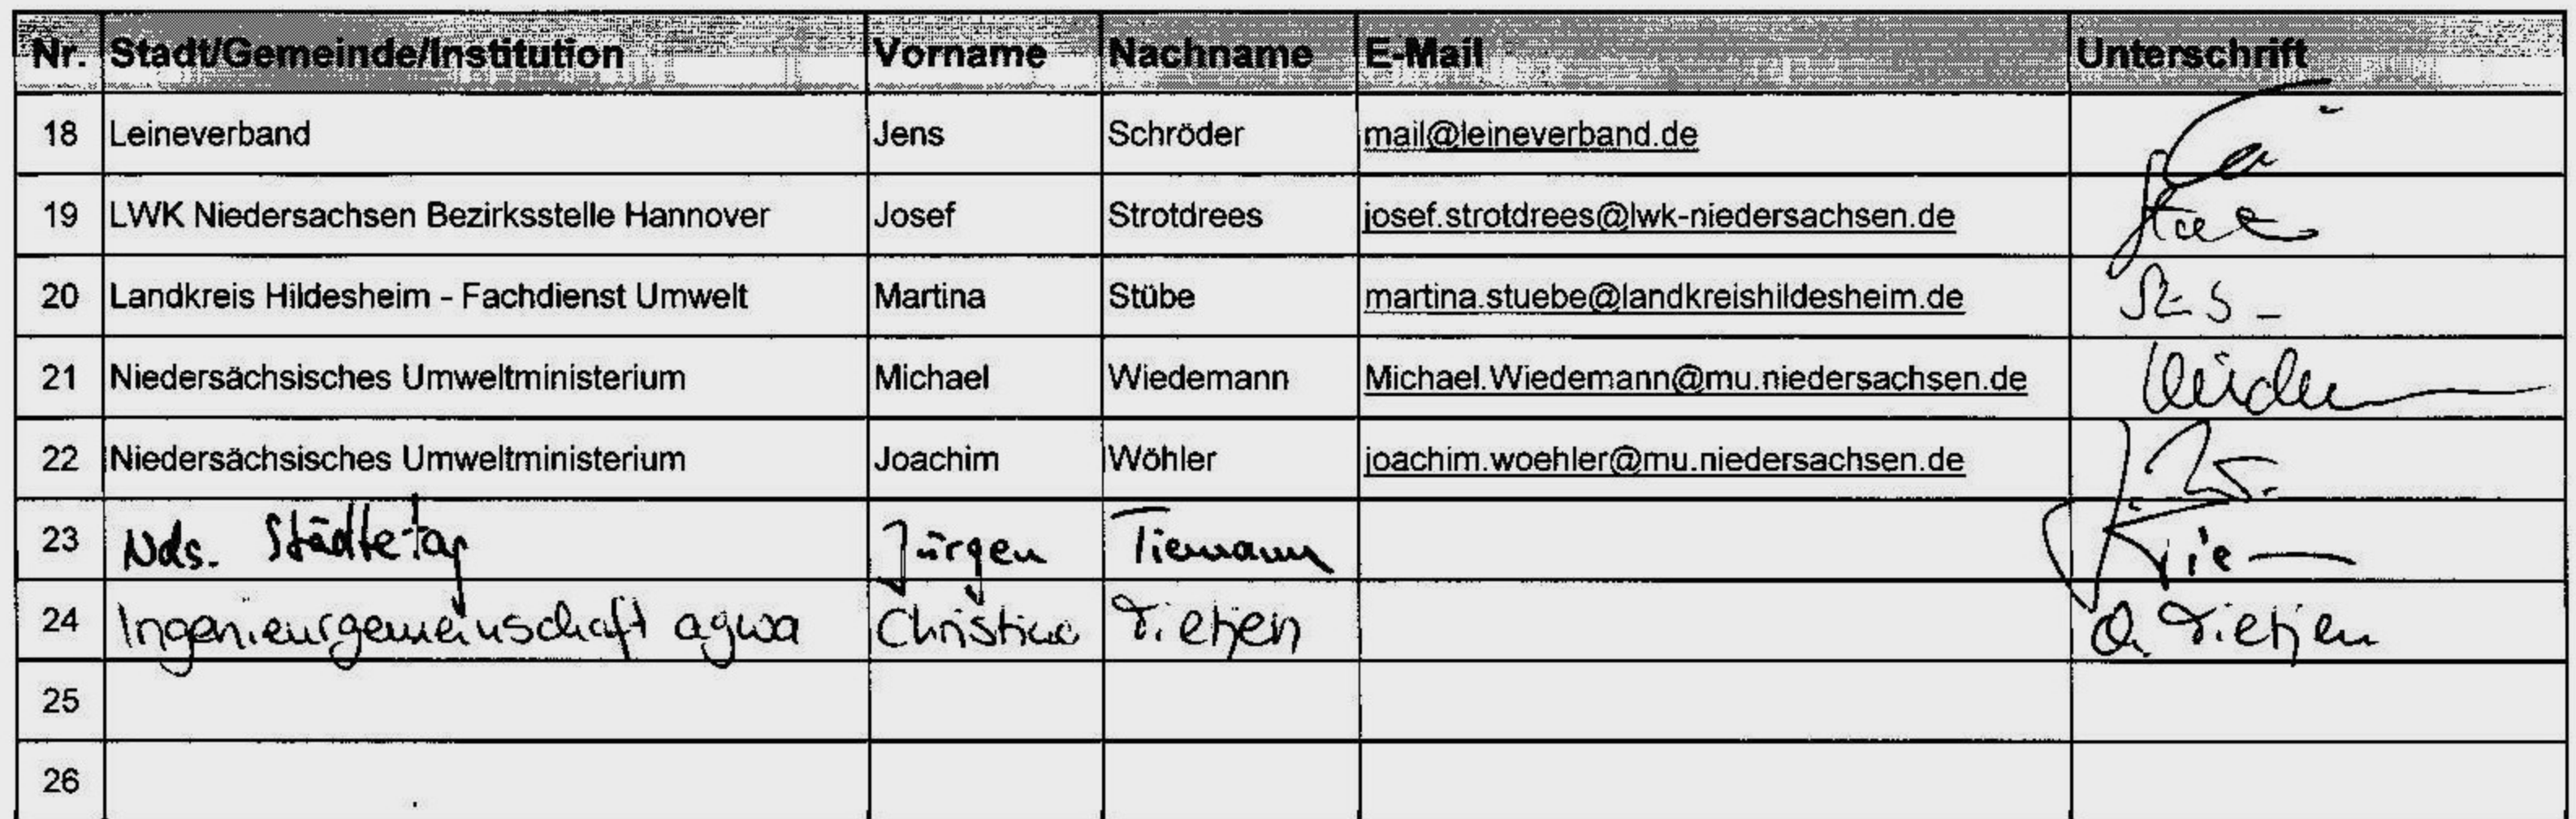 Nr. Stadt/Gemeinde/Institution Vorname Nachname E-Mail Unterschrift
18 Leineverband Jens Schröder mail@leineverband.de
19 LWK Niedersachsen Bezirksstelle Hannover Josef Strotdrees josef.strotdrees@lwk-niedersachsen.de
20 Landkreis Hildesheim - Fachdienst Umwelt Martina Stübe martina.stuebe@landkreishildesheim.de
21 Niedersächsisches Umweltministerium Michael Wiedemann Michael.Wiedemann@mu.niedersachsen.de
22 Niedersächsisches Umweltministerium Joachim Wöhler joachim.woehler@mu.niedersachsen.de
23 Nds. Städtetag Jürgen Tiemann
24 Ingenieurgemeinschaft agwa Christine Tietjen C. Tietjen
25
26